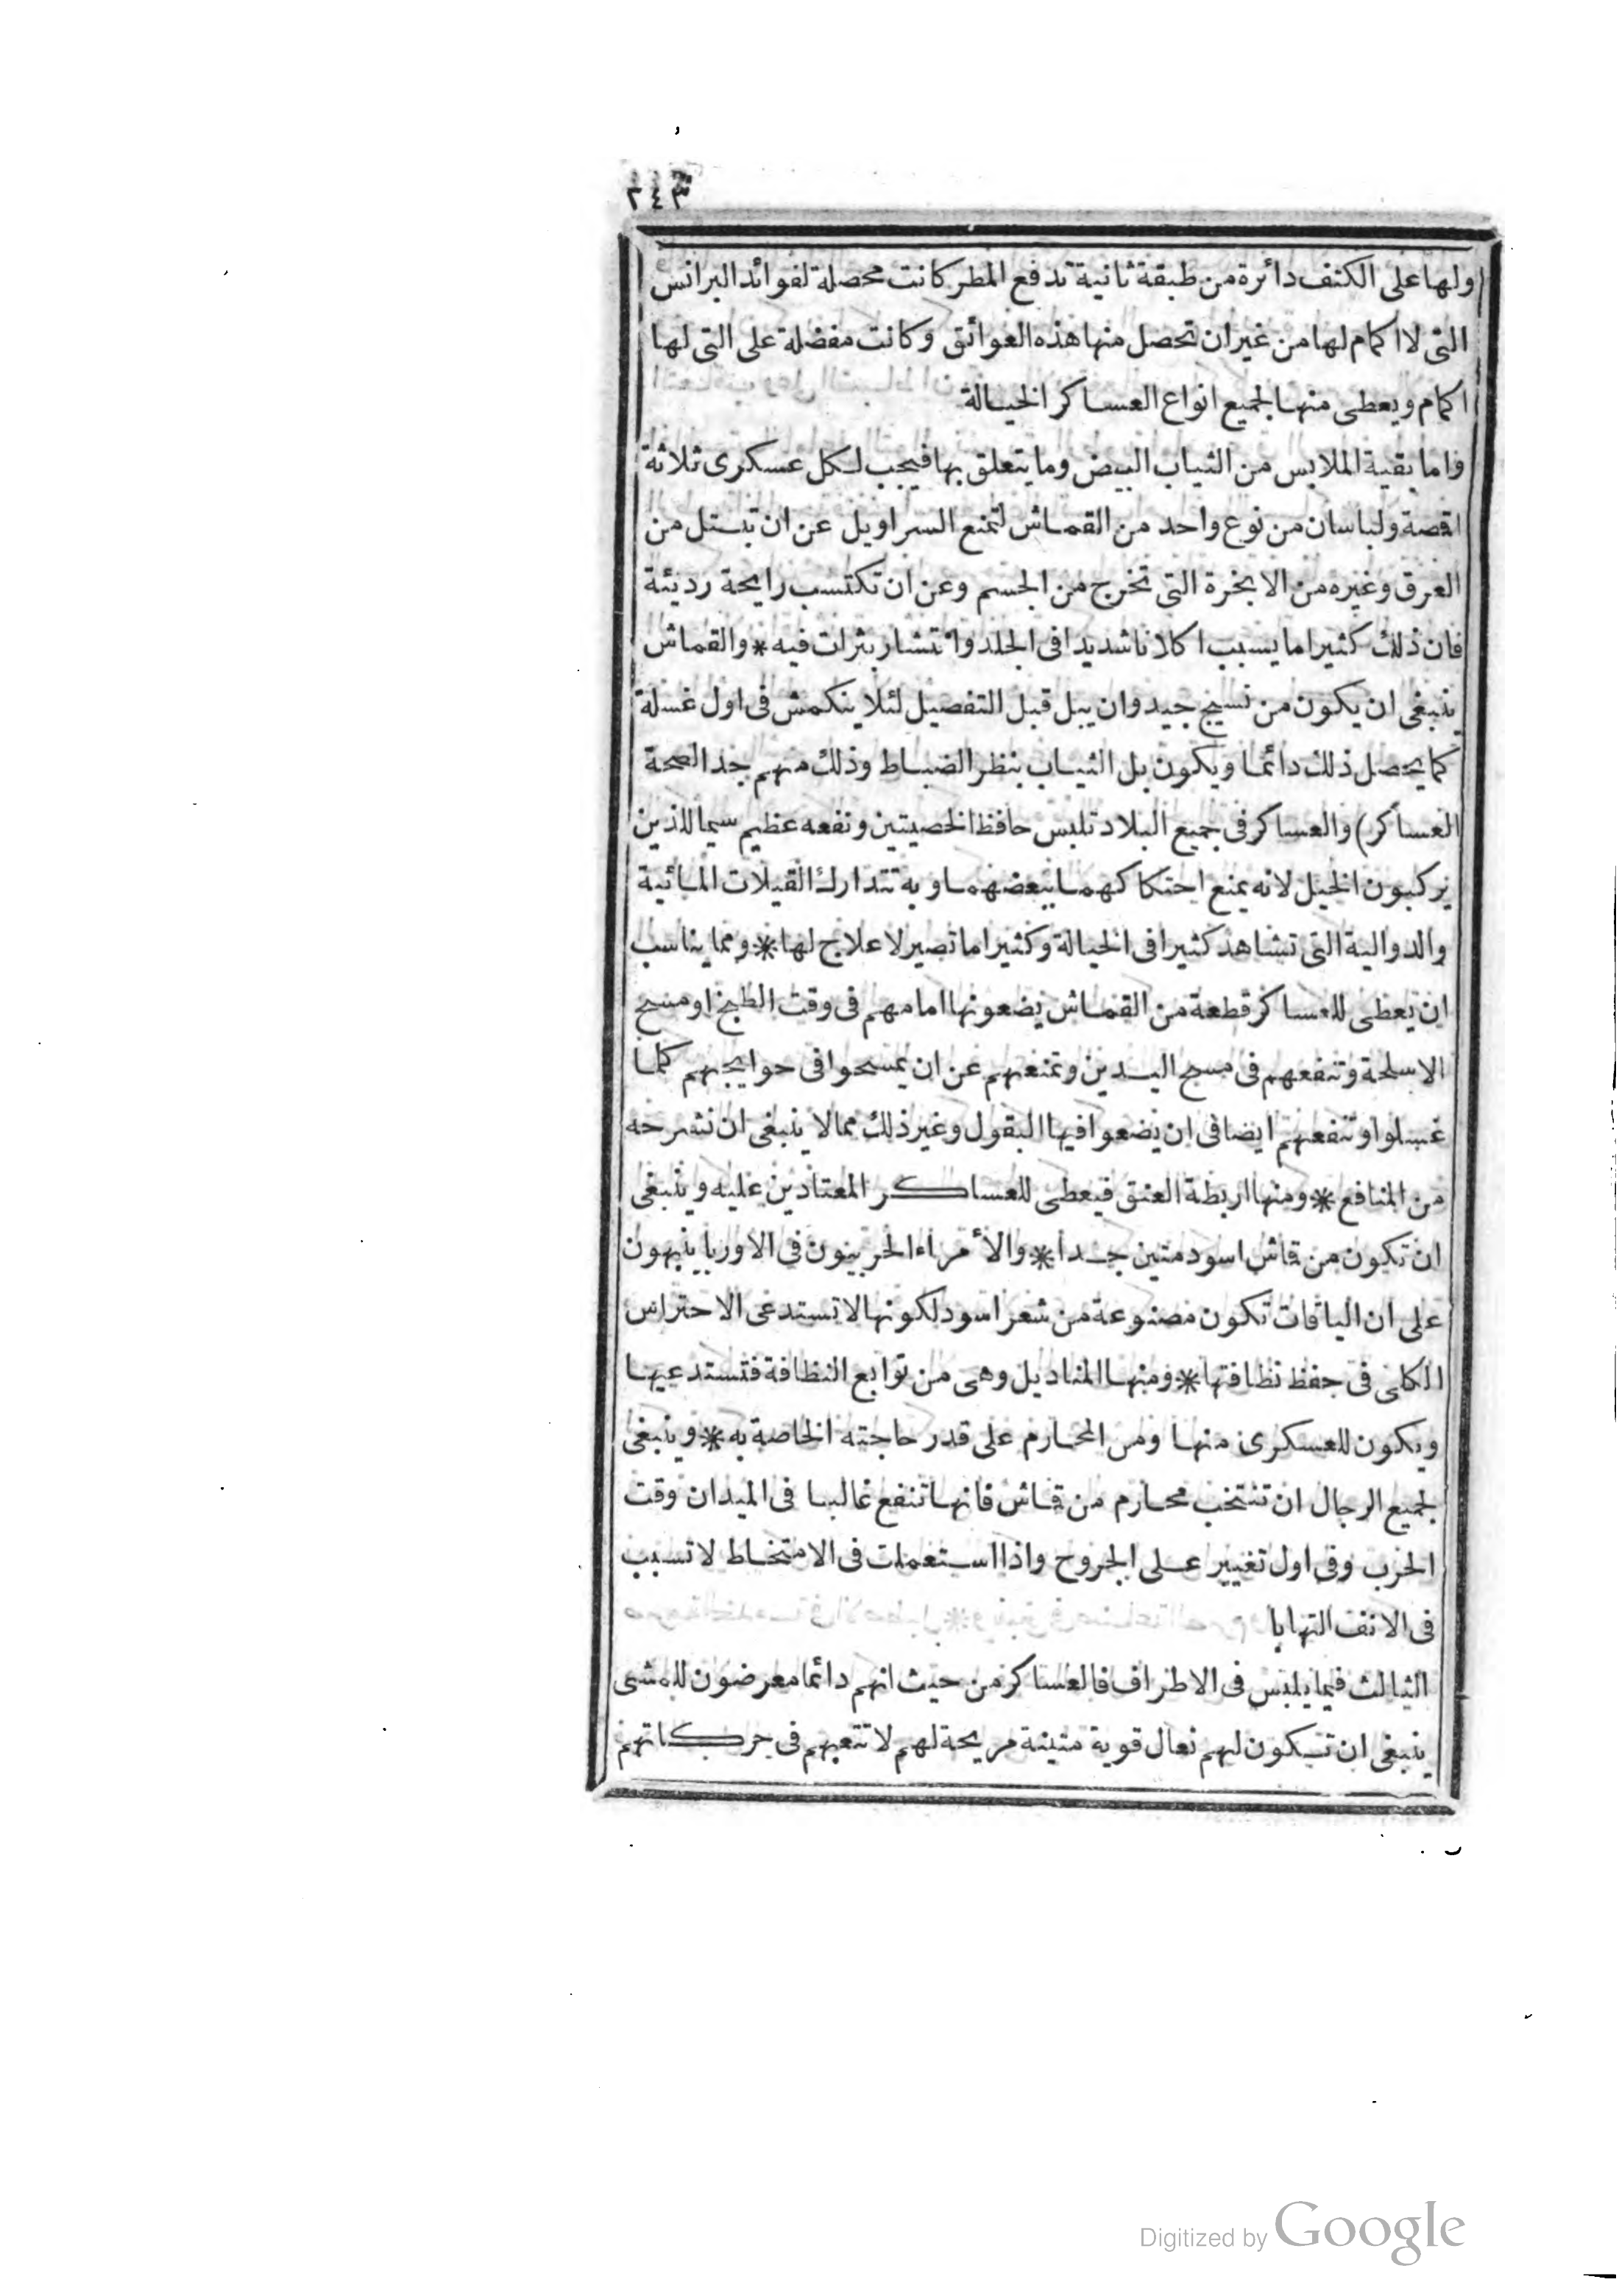 ٢٤٣
ولها على الكتف دائرة من طبقة ثانية تدفع المطر كانت محصلة لفوائد البرانس
التى لا اكمام لها من غير ان تحصل منها هذه العوائق وكانت مفضلة على التى لها
اكمام ويعطى منها لجميع انواع العساكر الخيالة
واما بقية الملابس من الثياب البيض وما يتعلق بها فيجب لكل عسكرى ثلاثة
اقصة ولباسان من نوع واحد من القماش لتمنع السراويل عن ان تبتل من
العرق وغيره من الابخرة التى تخرج من الجسم وعن ان تكتسب رايحة رديئة
فان ذلك كثيرا ما يسبب اكلانا شديدا فى الجلد وانتشار بثرات فيه * والقماش
ينبغى ان يكون من نسيج جيد وان يبل قبل التفصيل لئلا ينكمش فى اول غسلة
كما يحصل ذلك دائما ويكون بل الثياب بنظر الضباط وذلك مهم جدا لصحة
العساكر) والعساكر فى جميع البلاد تلبس حافظ الخصيتين ونفعه عظيم سيما للذين
يركبون الخيل لانه يمنع احتكاكهما ببعضهما وبه تتدارك القيلات المائية
والدوالية التى تشاهد كثيرا فى الخيالة وكثيرا ما تصير لا علاج لها * ومما يناسب
ان يعطى للعساكر قطعة من القماش يضعونها امامهم فى وقت الطبخ او مسح
الاسلحة وتنفعهم فى مسح اليدين وتمنعهم عن ان يمسحوا فى حوايجهم كلما
غسلوا وتنفعهم ايضا فى ان يضعوا فيها البقول وغير ذلك مما لا ينبغى ان نشرحه
من المنافع * ومنها اربطة العنق فيعطى للعساكر المعتادين عليه وينبغى
ان تكون من قماش اسود متين جدا * والأمراء الحربيون فى الاوربا ينبهون
على ان الياقات تكون مصنوعة من شعر اسود لكونها لا تستدعى الاحتراس
الكلى فى حفظ نظافتها * ومنها المناديل وهى من توابع النظافة فتستدعيها
ويكون للعسكرى منها ومن المحارم على قدر حاجته الخاصة به * وينبغى
لجميع الرجال ان تنتخب محارم من قماش فانها تنفع غالبا فى الميدان وقت
الحرب وفى اول تغيير على الجروح واذا استعملت فى الامتخاط لا تسبب
فى الانف التهابا
الثالث فيما يلبس فى الاطراف فالعساكر من حيث انهم دائما معرضون للمشى
ينبغى ان تكون لهم نعال قوية متينة مريحة لهم لا تتعبهم فى حركاتهم
Digitized by Google